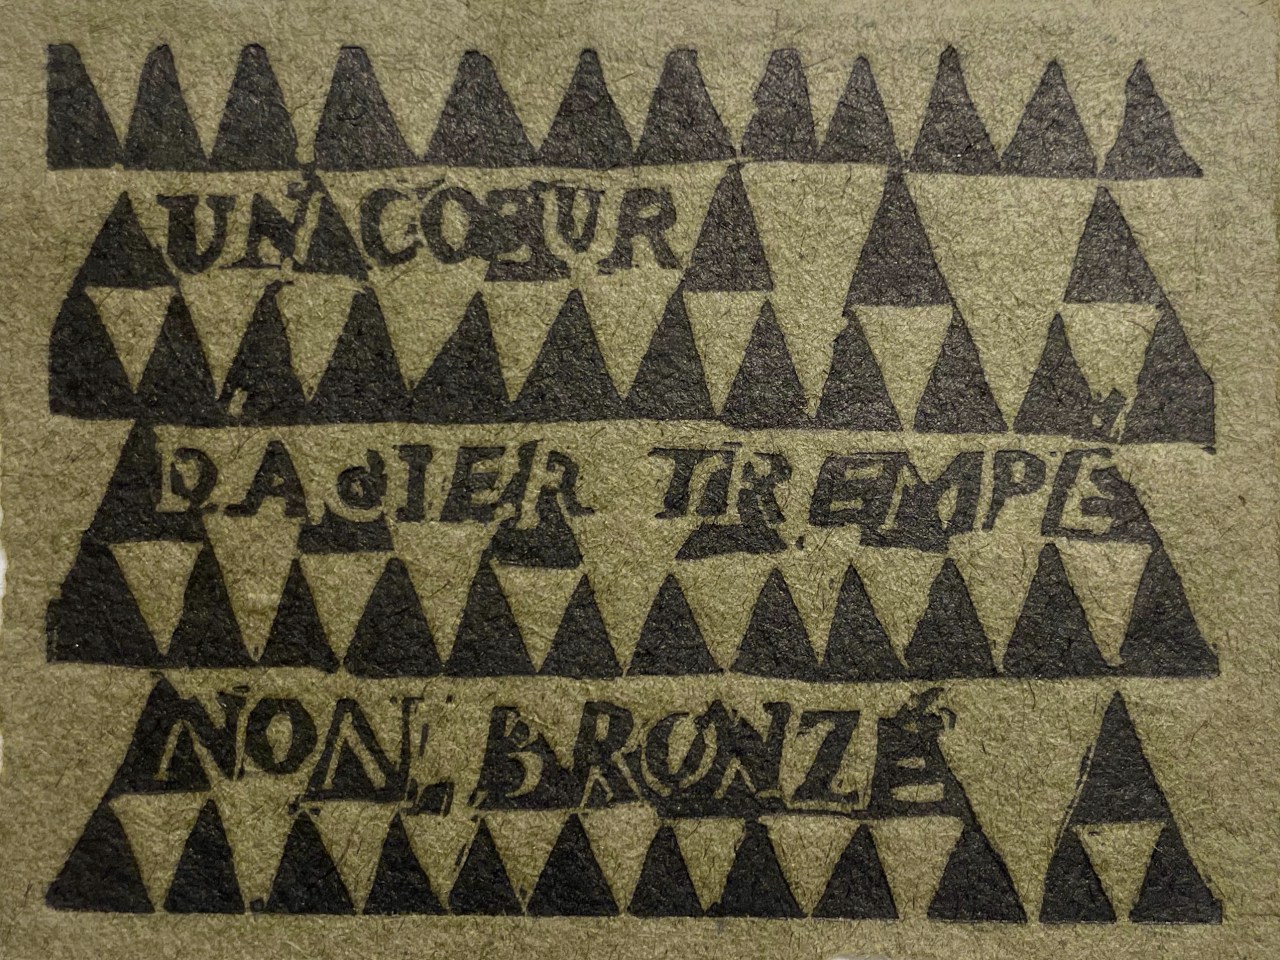 UN CŒUR
DACIER TREMPE
NON, BRONZÉ